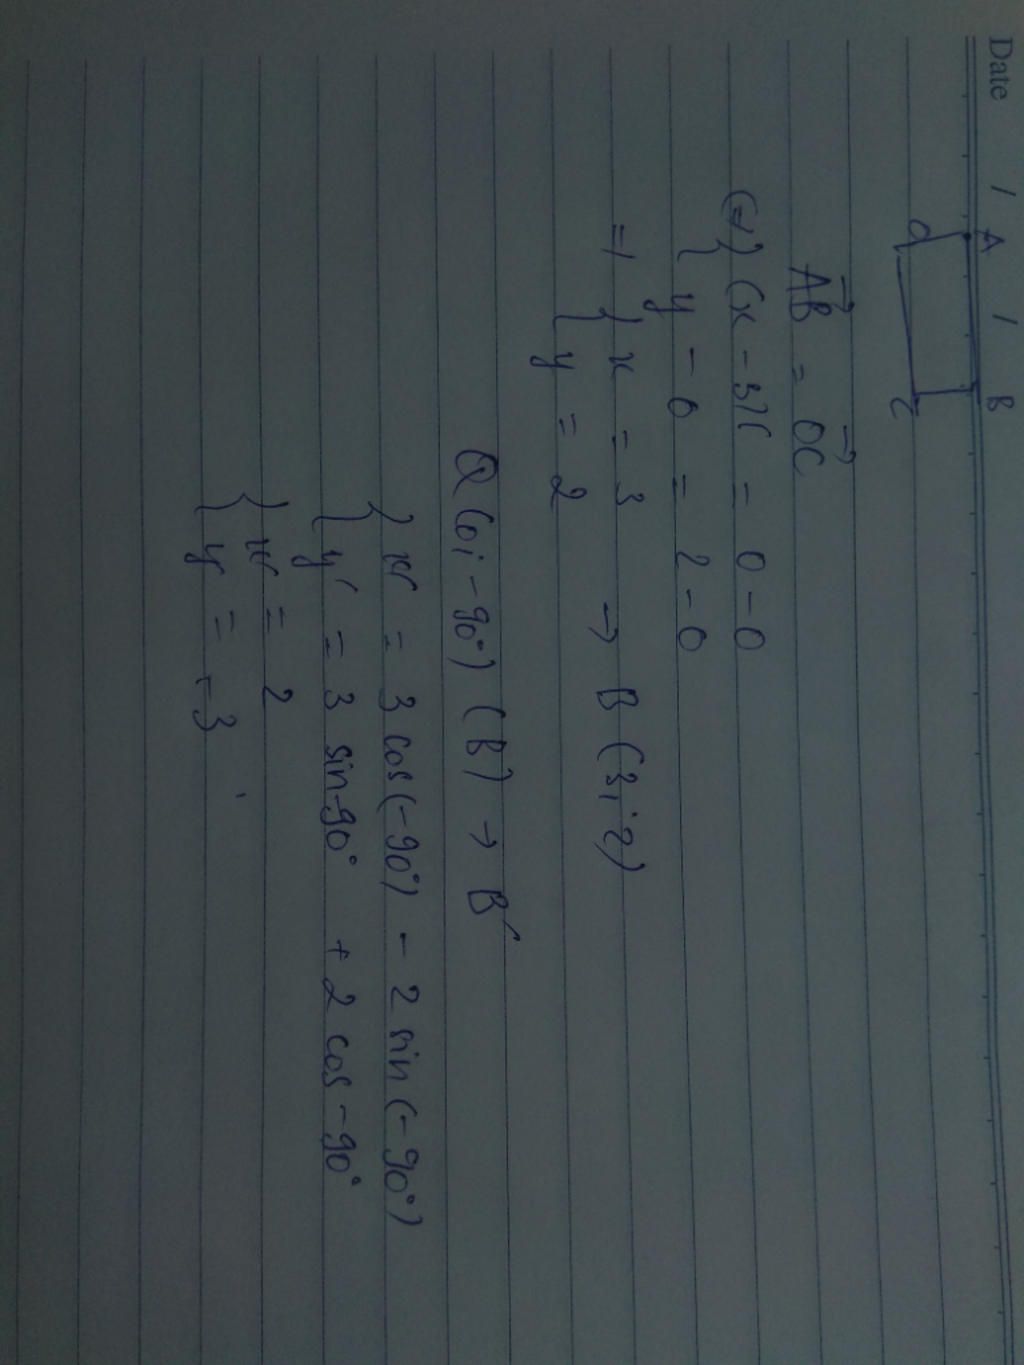 Date / /
A B
O C
AB = OC
y - 0 = 2 - 0
x = 3 → B (3; 2)
y = 2
Q (O; -90°) (B) → B'
x' = 3 cos(-90°) - 2 sin(-90°)
y' = 3 sin-90° + 2 cos-90°
x' = 2
y' = -3